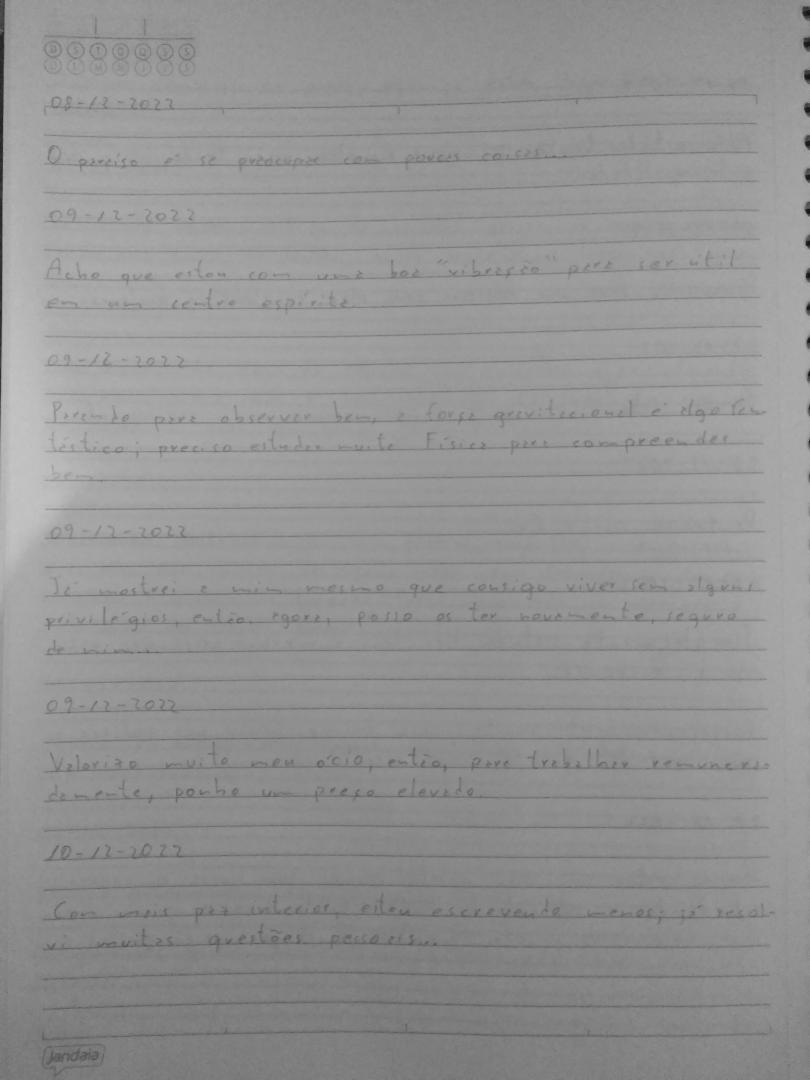 D S T Q Q S S
D L M M J V S
08-12-2022
O preciso é se preocupar com poucas coisas...
09-12-2022
Acho que estou com uma boa "vibração" para ser útil
em um centro espírita.
09-12-2022
Parando para observar bem, a força gravitacional é algo fan-
tástico; preciso estudar muito Física para compreender
bem.
09-12-2022
Já mostrei a mim mesmo que consigo viver sem alguns
privilégios, então, agora, posso os ter novamente, seguro
de mim...
09-12-2022
Valorizo muito meu ócio, então, para trabalhar remunera-
damente, ponho um preço elevado.
10-12-2022
Com mais paz interior, estou escrevendo menos; já resol-
vi muitas questões pessoais...
jandaia